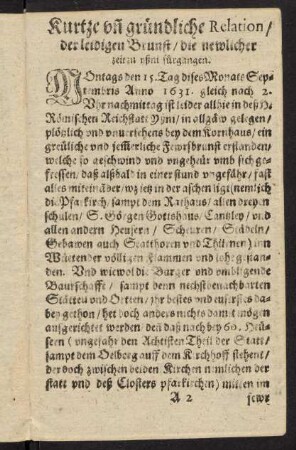 Kurtze vñ gründliche Relation/
der leidigen Brunst/ die newlicher
zeit zu yßni fürgangen.
MOntags den 15. Tag dises Monats Sep-
tembris Anno 1631. gleich nach 2.
Vhr nachmittag ist leider allhie in deß H.
Römischen Reichstatt Yßni/ in allgäw gelegen/
plötzlich vnd vnuersehens bey dem Kornhauß/ ein
greuliche vnd jemerliche Fewrsbrunst erstanden/
welche so geschwind vnd vngeheur vmb sich ge-
fressen/ daß alsbald in einer stund vngefähr/ fast
alles miteinäder/ wz jetz in der aschen ligt (nemlich
die Pfarkirch/ sampt dem Rathauß/ allen dreyen
schulen/ S. Görgen Gottshauß/ Cantzley/ vnd
allen andern Heusern/ Scheuren/ Städeln/
Gebäwen auch Statthoren vnd Thürnen) inn
Würten der völligen Flammen vnd lohe gestan-
den. Vnd wiewol die Burger vnd vmbligende
Baurschafft/ sampt denn nechstbenachbarten
Stätten vnd Orten/ jhr bestes vnd eusserstes da-
bey gethon/ hat doch anders nichts damit mögen
außgerichtet werden/ den daß nach bey 60. Heu-
sern (vngefahr den Achtisten Theil der Statt/
sampt dem Oelberg auff dem Kirchhoff stehent/
der doch zwischen beiden Kirchen nemlichen der
statt vnd deß Closters pfarkirchen) mitten im
A 2 fewr